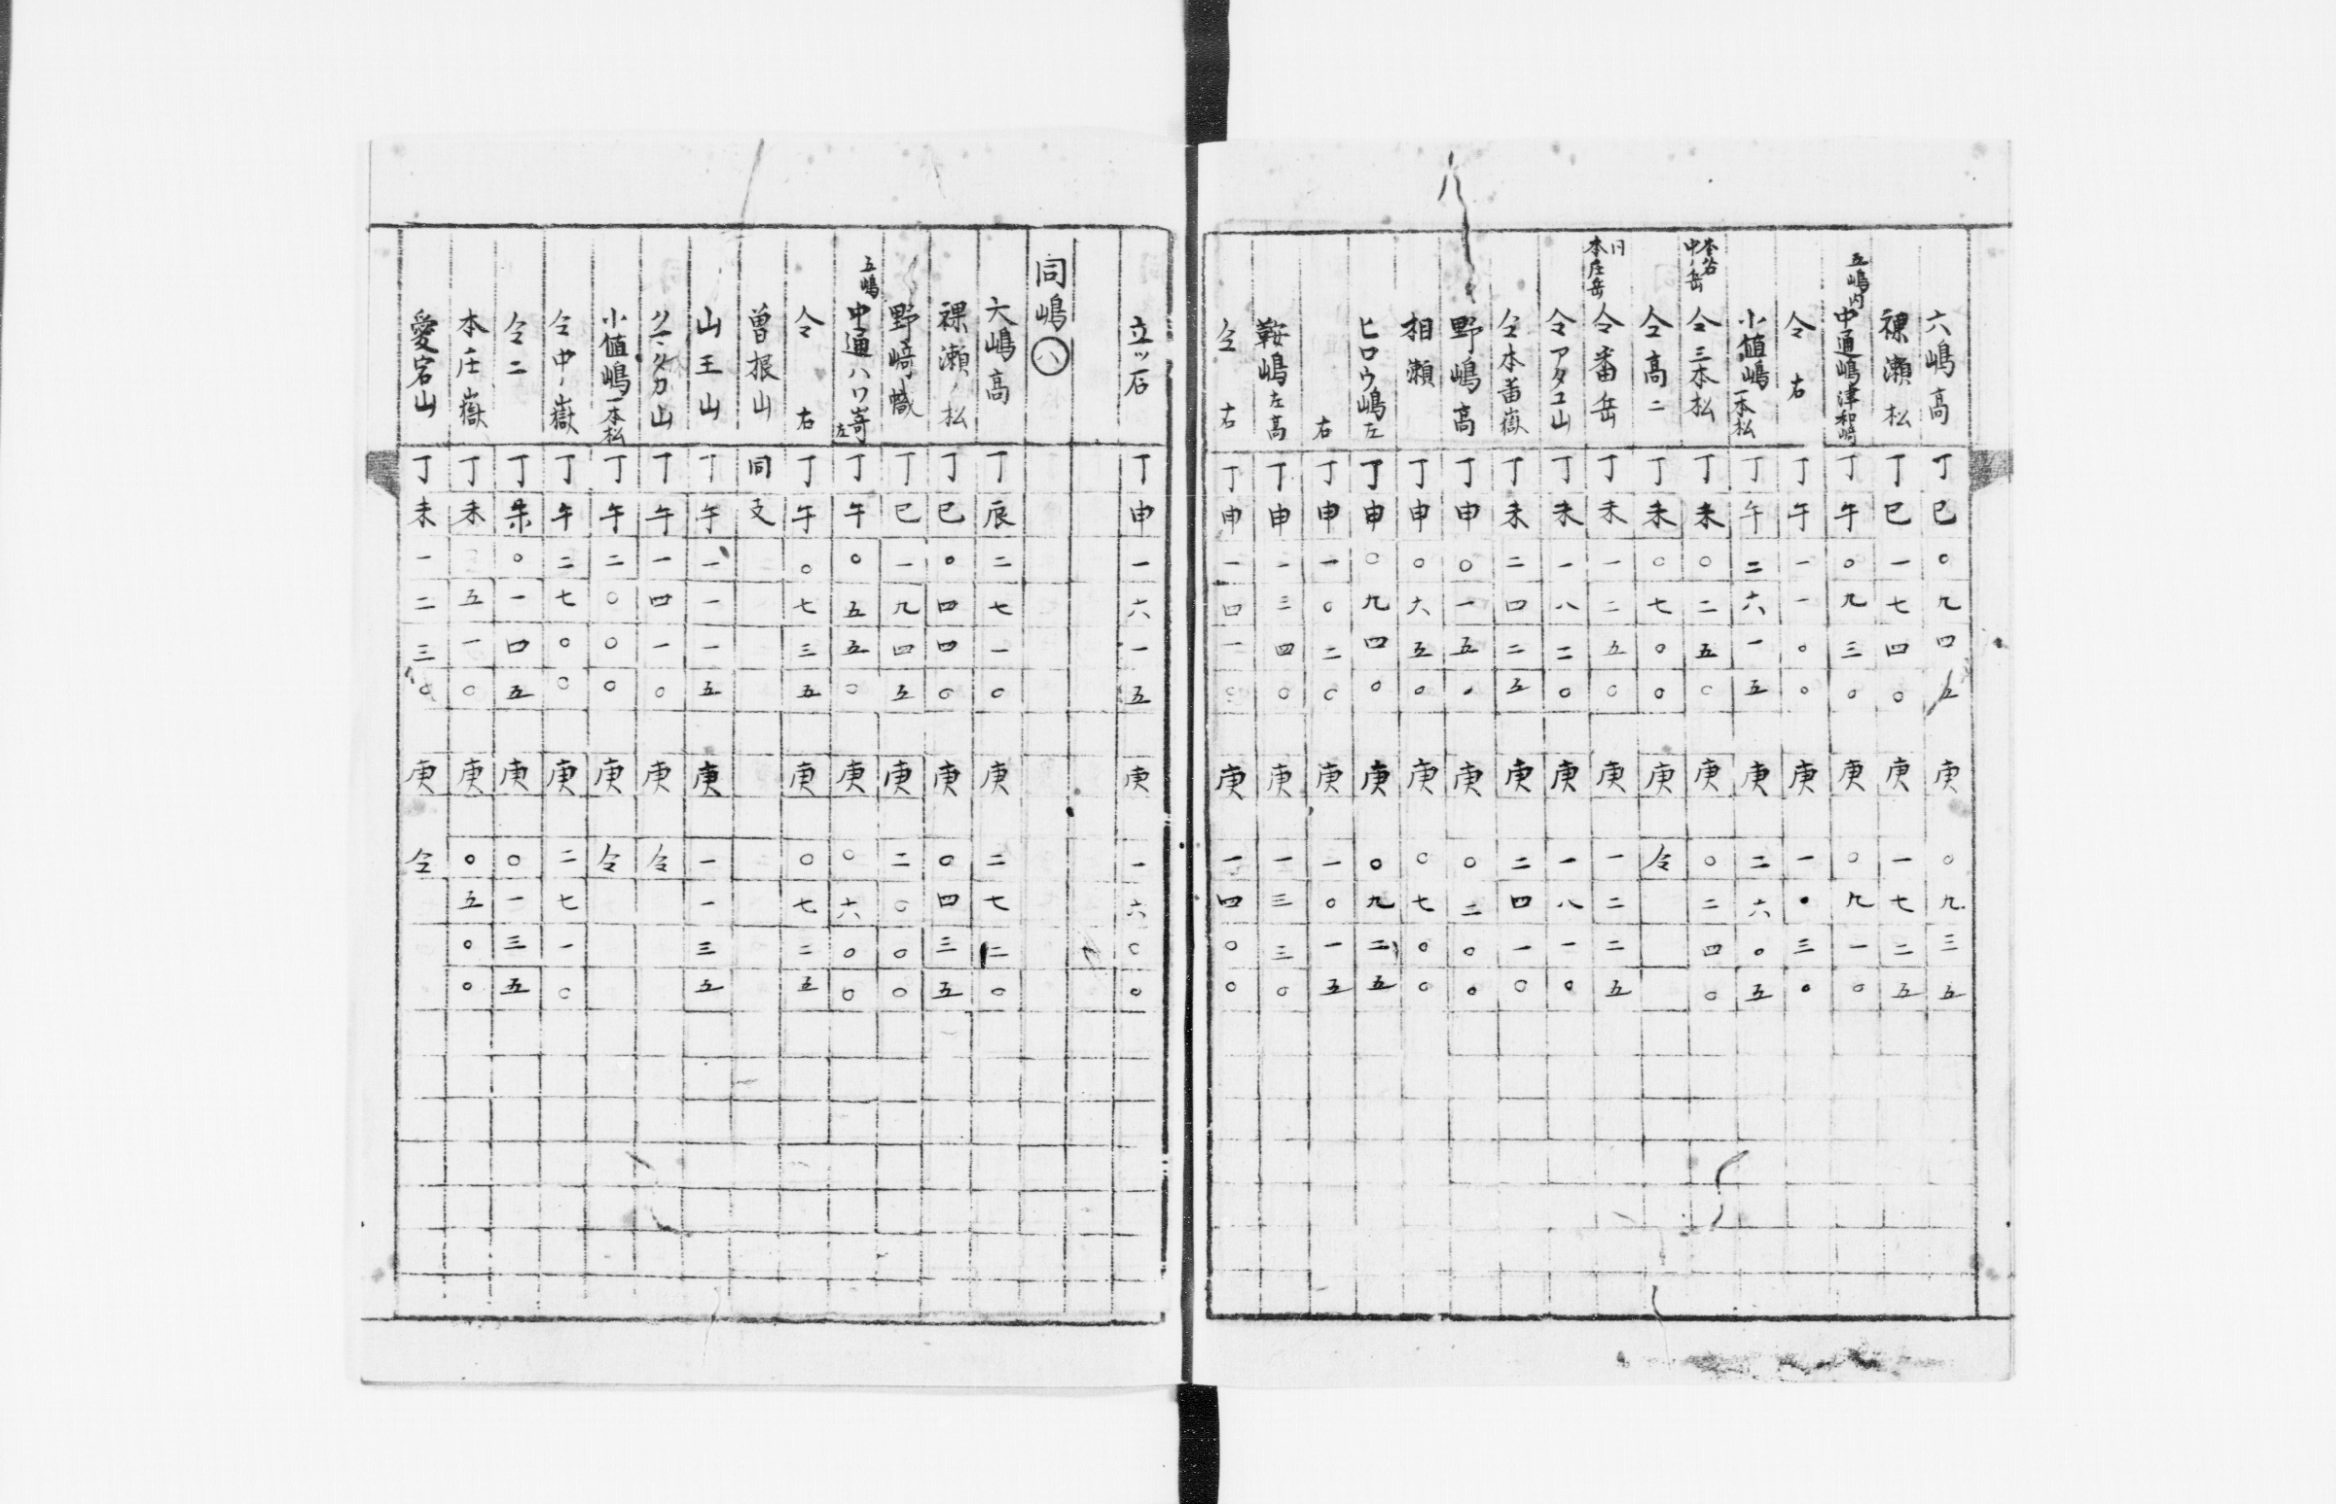 六嶋高 丁巳 〇九四五 庚 〇九三五
裸瀬松 丁巳 一七四〇 庚 一七二五
五嶋内 中通嶋津和崎 丁午 〇九三〇 庚 〇九一〇
仝 右 丁午 一一〇〇 庚 一〇三〇
小値嶋一本松 丁午 二六一五 庚 二六〇五
本名中ノ岳 仝三本松 丁未 〇二五〇 庚 〇二四〇
仝高二 丁未 〇七〇〇 庚 仝
本庄岳 仝番岳 丁未 一二五〇 庚 一二二五
仝アタコ山 丁未 一八二〇 庚 一八一〇
仝本番嶽 丁未 二四二五 庚 二四一〇
野嶋高 丁申 〇一五〇 庚 〇二〇〇
相瀬 丁申 〇六五〇 庚 〇七〇〇
ヒロウ嶋左 丁申 〇九四〇 庚 〇九二五
右 丁申 一〇二〇 庚 一〇一五
鞍嶋左高 丁申 一三四〇 庚 一三三〇
仝 右 丁申 一四一〇 庚 一四〇〇
立ッ石 丁申 一六一五 庚 一六〇〇
同嶋八
大嶋高 丁辰 二七一〇 庚 二七二〇
裸瀬ノ松 丁巳 〇四四〇 庚 〇四三五
野崎幟 丁巳 一九四五 庚 二〇〇〇
五嶋 中通ハワ崎左 丁午 〇五五〇 庚 〇六〇〇
仝 右 丁午 〇七三五 庚 〇七二五
曽根山 同支
山王山 丁午 一一一五 庚 一一三五
タカ山 丁午 一四一〇 庚 仝
小値嶋一本松 丁午 二〇〇〇 庚 仝
仝中ノ嶽 丁午 二七〇〇 庚 二七一〇
仝二 丁未 〇一四五 庚 〇一三五
本庄嶽 丁未 〇五一〇 庚 〇五〇〇
愛宕山 丁未 一二三〇 庚 仝